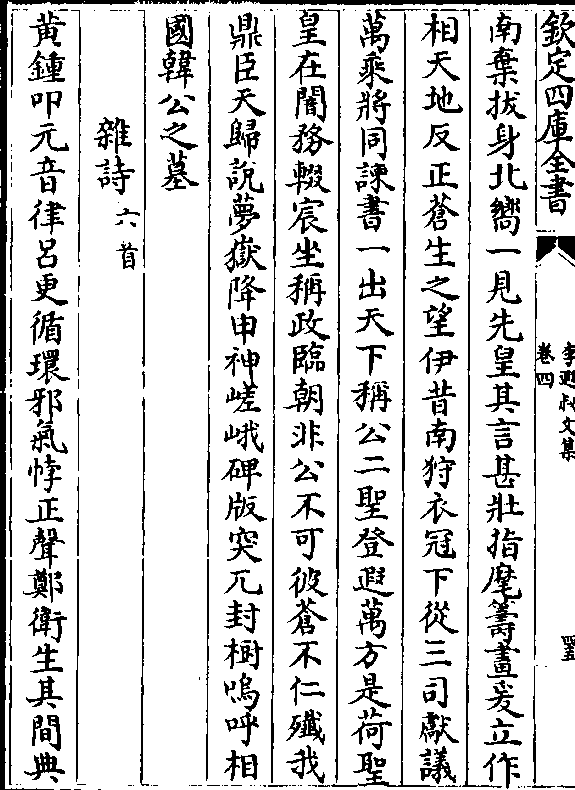 欽定四庫全書
李遐叔文集
卷四
南棄拔身北嚮一見先皇其言甚壯指麾籌畫爰立作
相天地反正蒼生之望伊昔南狩衣冠下從三司獻議
萬乘將同諫書一出天下稱公二聖登遐萬方是荷聖
皇在闇務輟宸坐稱政臨朝非公不可彼蒼不仁殲我
鼎臣天歸說夢嶽降申神嵯峨碑版突兀封樹嗚呼相
國韓公之墓
雜詩六首
黃鍾叩元音律呂更循環邪氣悖正聲鄭衛生其間典